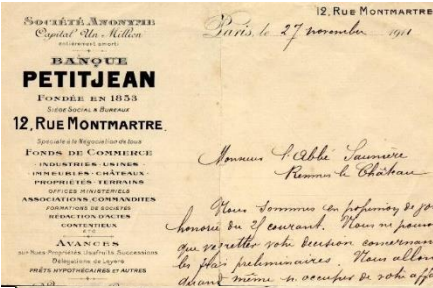 12, RUE MONTMARTRE
SOCIÉTÉ ANONYME
Capital Un Million
entièrement amorti
BANQUE
PETITJEAN
FONDÉE EN 1853
SIÈGE SOCIAL & BUREAUX
12, RUE MONTMARTRE.
Spéciale à la Négociation de tous
FONDS DE COMMERCE
INDUSTRIES - USINES
IMMEUBLES - CHÂTEAUX
PROPRIÉTÉS - TERRAINS
OFFICES MINISTÉRIELS
ASSOCIATIONS, COMMANDITES
FORMATIONS DE SOCIÉTÉS
RÉDACTION D'ACTES
CONTENTIEUX
ETC
AVANCES
sur Nues Propriétés Usufruits Successions
Délégations de Loyers
PRÊTS HYPOTHÉCAIRES ET AUTRES
Paris, le 27 november 1911
Monsieur l'Abbé Saunière
Rennes le Château
Nous sommes en possession de
honorée du 25 courant. Nous ne
que regretter votre decision concernant
les frais preliminaires. Nous allons
quand même n occuper de votre